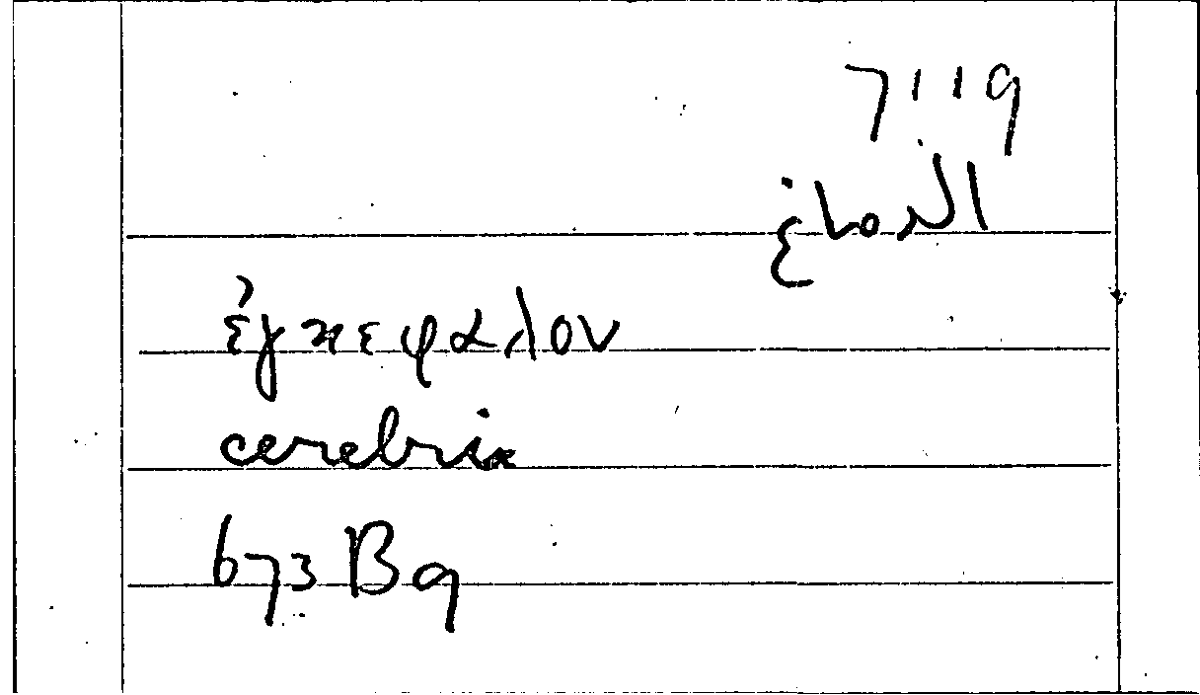 7119
الدماغ
ἐγκεφαλον
cerebrix
673 B9